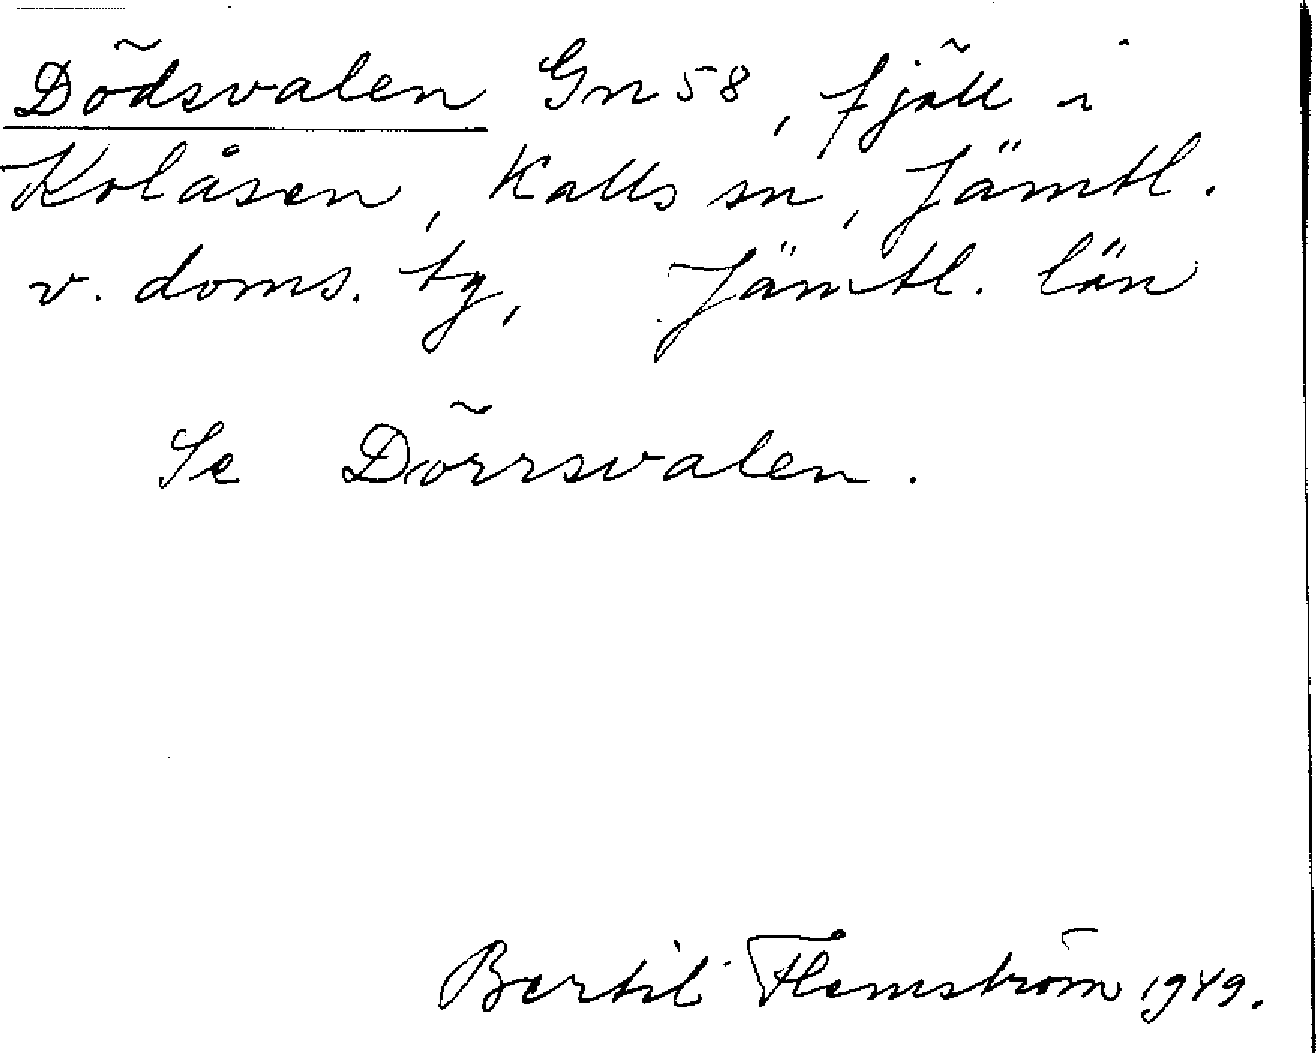 Dödsvalen Gn 58, fjäll i
Kolåsen, Kalls sn, Jämtl.
v. doms. tg, Jämtl. län
Se Dörrsvalen.
Bertil Flemström 1949.